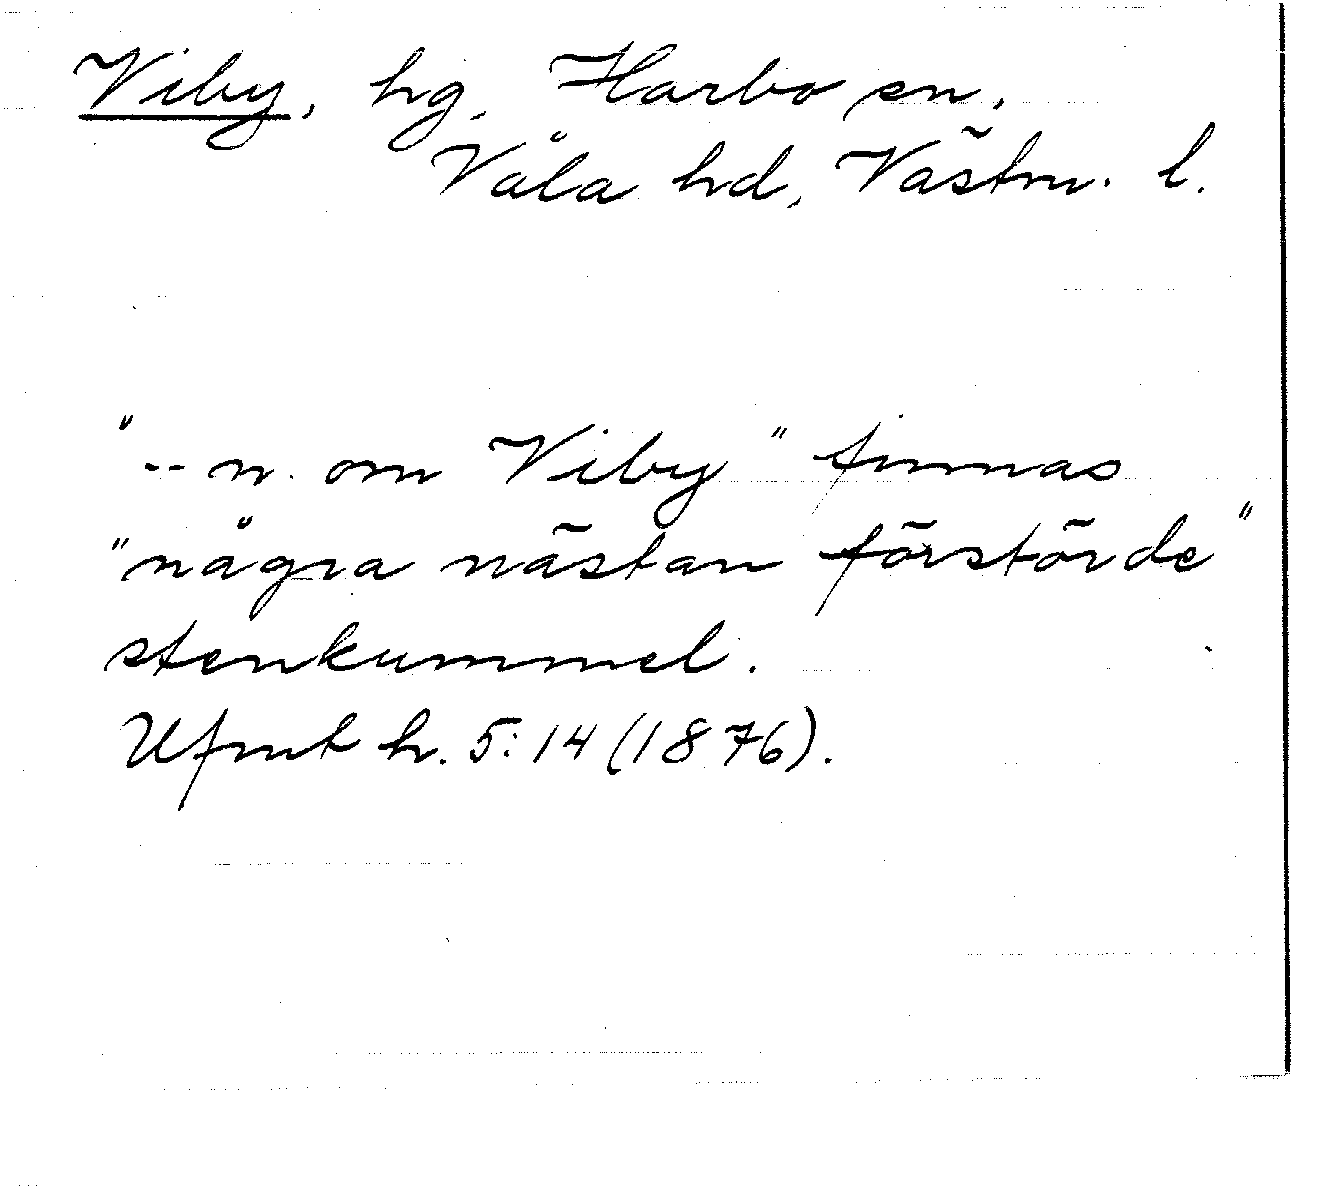 Viby, hg, Harbo sn,
Våla hd, Västm. l.
"-- n. om Viby" finnas
"några nästan förstörde"
stenkummel.
Ufmt h. 5:14 (1876).